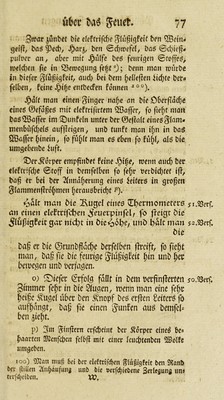 über das Feuer. 77
Zwar zündet die elektrische Flüßigkeit den Wein-
geist, das Pech, Harz, den Schwefel, das Schieß-
pulver an, aber mit Hülfe des feurigen Stoffes,
welchen sie in Bewegung setzt; denn man würde
in dieser Flüßigkeit, auch bei dem hellesten Lichte der-
selben, keine Hitze entdecken können 100).
Hält man einen Finger nahe an die Oberfläche
eines Gefäßes mit elektrisirtem Wasser, so sieht man
das Wasser im Dunkeln unter der Gestalt eines Flam-
menbüschels aufsteigen, und tunkt man ihn in das
Wasser hinein, so fühlt man es eben so kühl, als die
umgebende Luft.
Der Körper empfindet keine Hitze, wenn auch der
elektrische Stoff in demselben so sehr verdichtet ist,
daß er bei der Annäherung eines Leiters in großen
Flammenströhmen herausbricht p).
Hält man die Kugel eines Thermometers 51.Vers.
an einen elektrischen Feuerpinsel, so steigt die
Flüßigkeit gar nicht in die Höhe, und hält man 52.Vers.
die
daß er die Grundfläche derselben streift, so sieht
man, daß sie die feurige Flüßigkeit hin und her
bewegen und verjagen.
o) Dieser Erfolg fällt in dem verfinsterten 50.Vers.
Zimmer sehr in die Augen, wenn man eine sehr
heiße Kugel über den Knopf des ersten Leiters so
aufhängt, daß sie einen Funken aus demsel-
ben zieht.
p) Im Finstern erscheint der Körper eines be-
haarten Menschen selbst mit einer leuchtenden Wolke
umgeben.
100) Man muß bei der elektrischen Flüßigkeit den Rand
der stillen Anhäufung und die verschiedene Zerlegung un-
terscheiden. W.